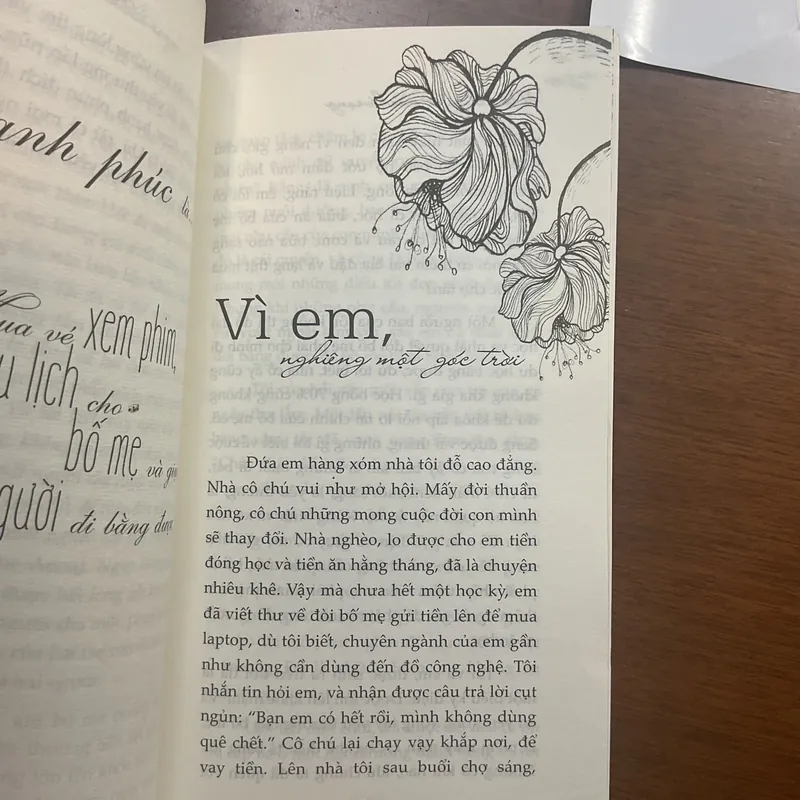 phúc
vé xem phim,
lịch cho
bố mẹ và
đi bằng được
Vì em,
nghiêng một góc trời
Đứa em hàng xóm nhà tôi đỗ cao đẳng.
Nhà cô chú vui như mở hội. Mấy đời thuần
nông, cô chú những mong cuộc đời con mình
sẽ thay đổi. Nhà nghèo, lo được cho em tiền
đóng học và tiền ăn hằng tháng, đã là chuyện
nhiêu khê. Vậy mà chưa hết một học kỳ, em
đã viết thư về đòi bố mẹ gửi tiền lên để mua
laptop, dù tôi biết, chuyên ngành của em gần
như không cần dùng đến đồ công nghệ. Tôi
nhắn tin hỏi em, và nhận được câu trả lời cụt
ngủn: “Bạn em có hết rồi, mình không dùng
quê chết.” Cô chú lại chạy vạy khắp nơi, để
vay tiền. Lên nhà tôi sau buổi chợ sáng,